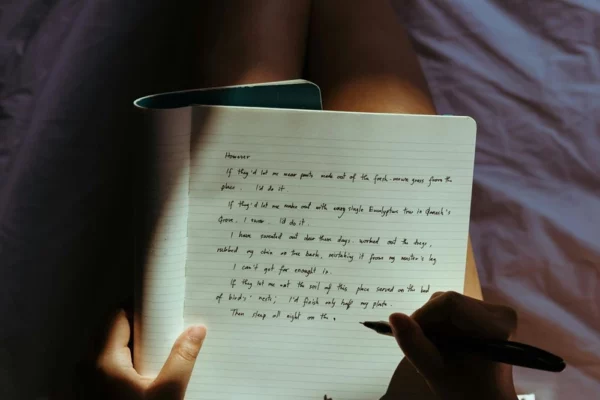 However
If they'd let me wear pants made out of the fresh-mown grass from the
place. I'd do it
If they'd let me make out with every single Eucalyptus tree in
Grove, I swear I'd do it.
I have sweated out down these days, worked out the dregs,
rubbed my chin on the bark, mistaking it from my master's leg
I can't get far enough in.
If they let me eat the soil of this place served on the bed
of birds' nests; I'd finish only half my plate.
Then sleep all night on the